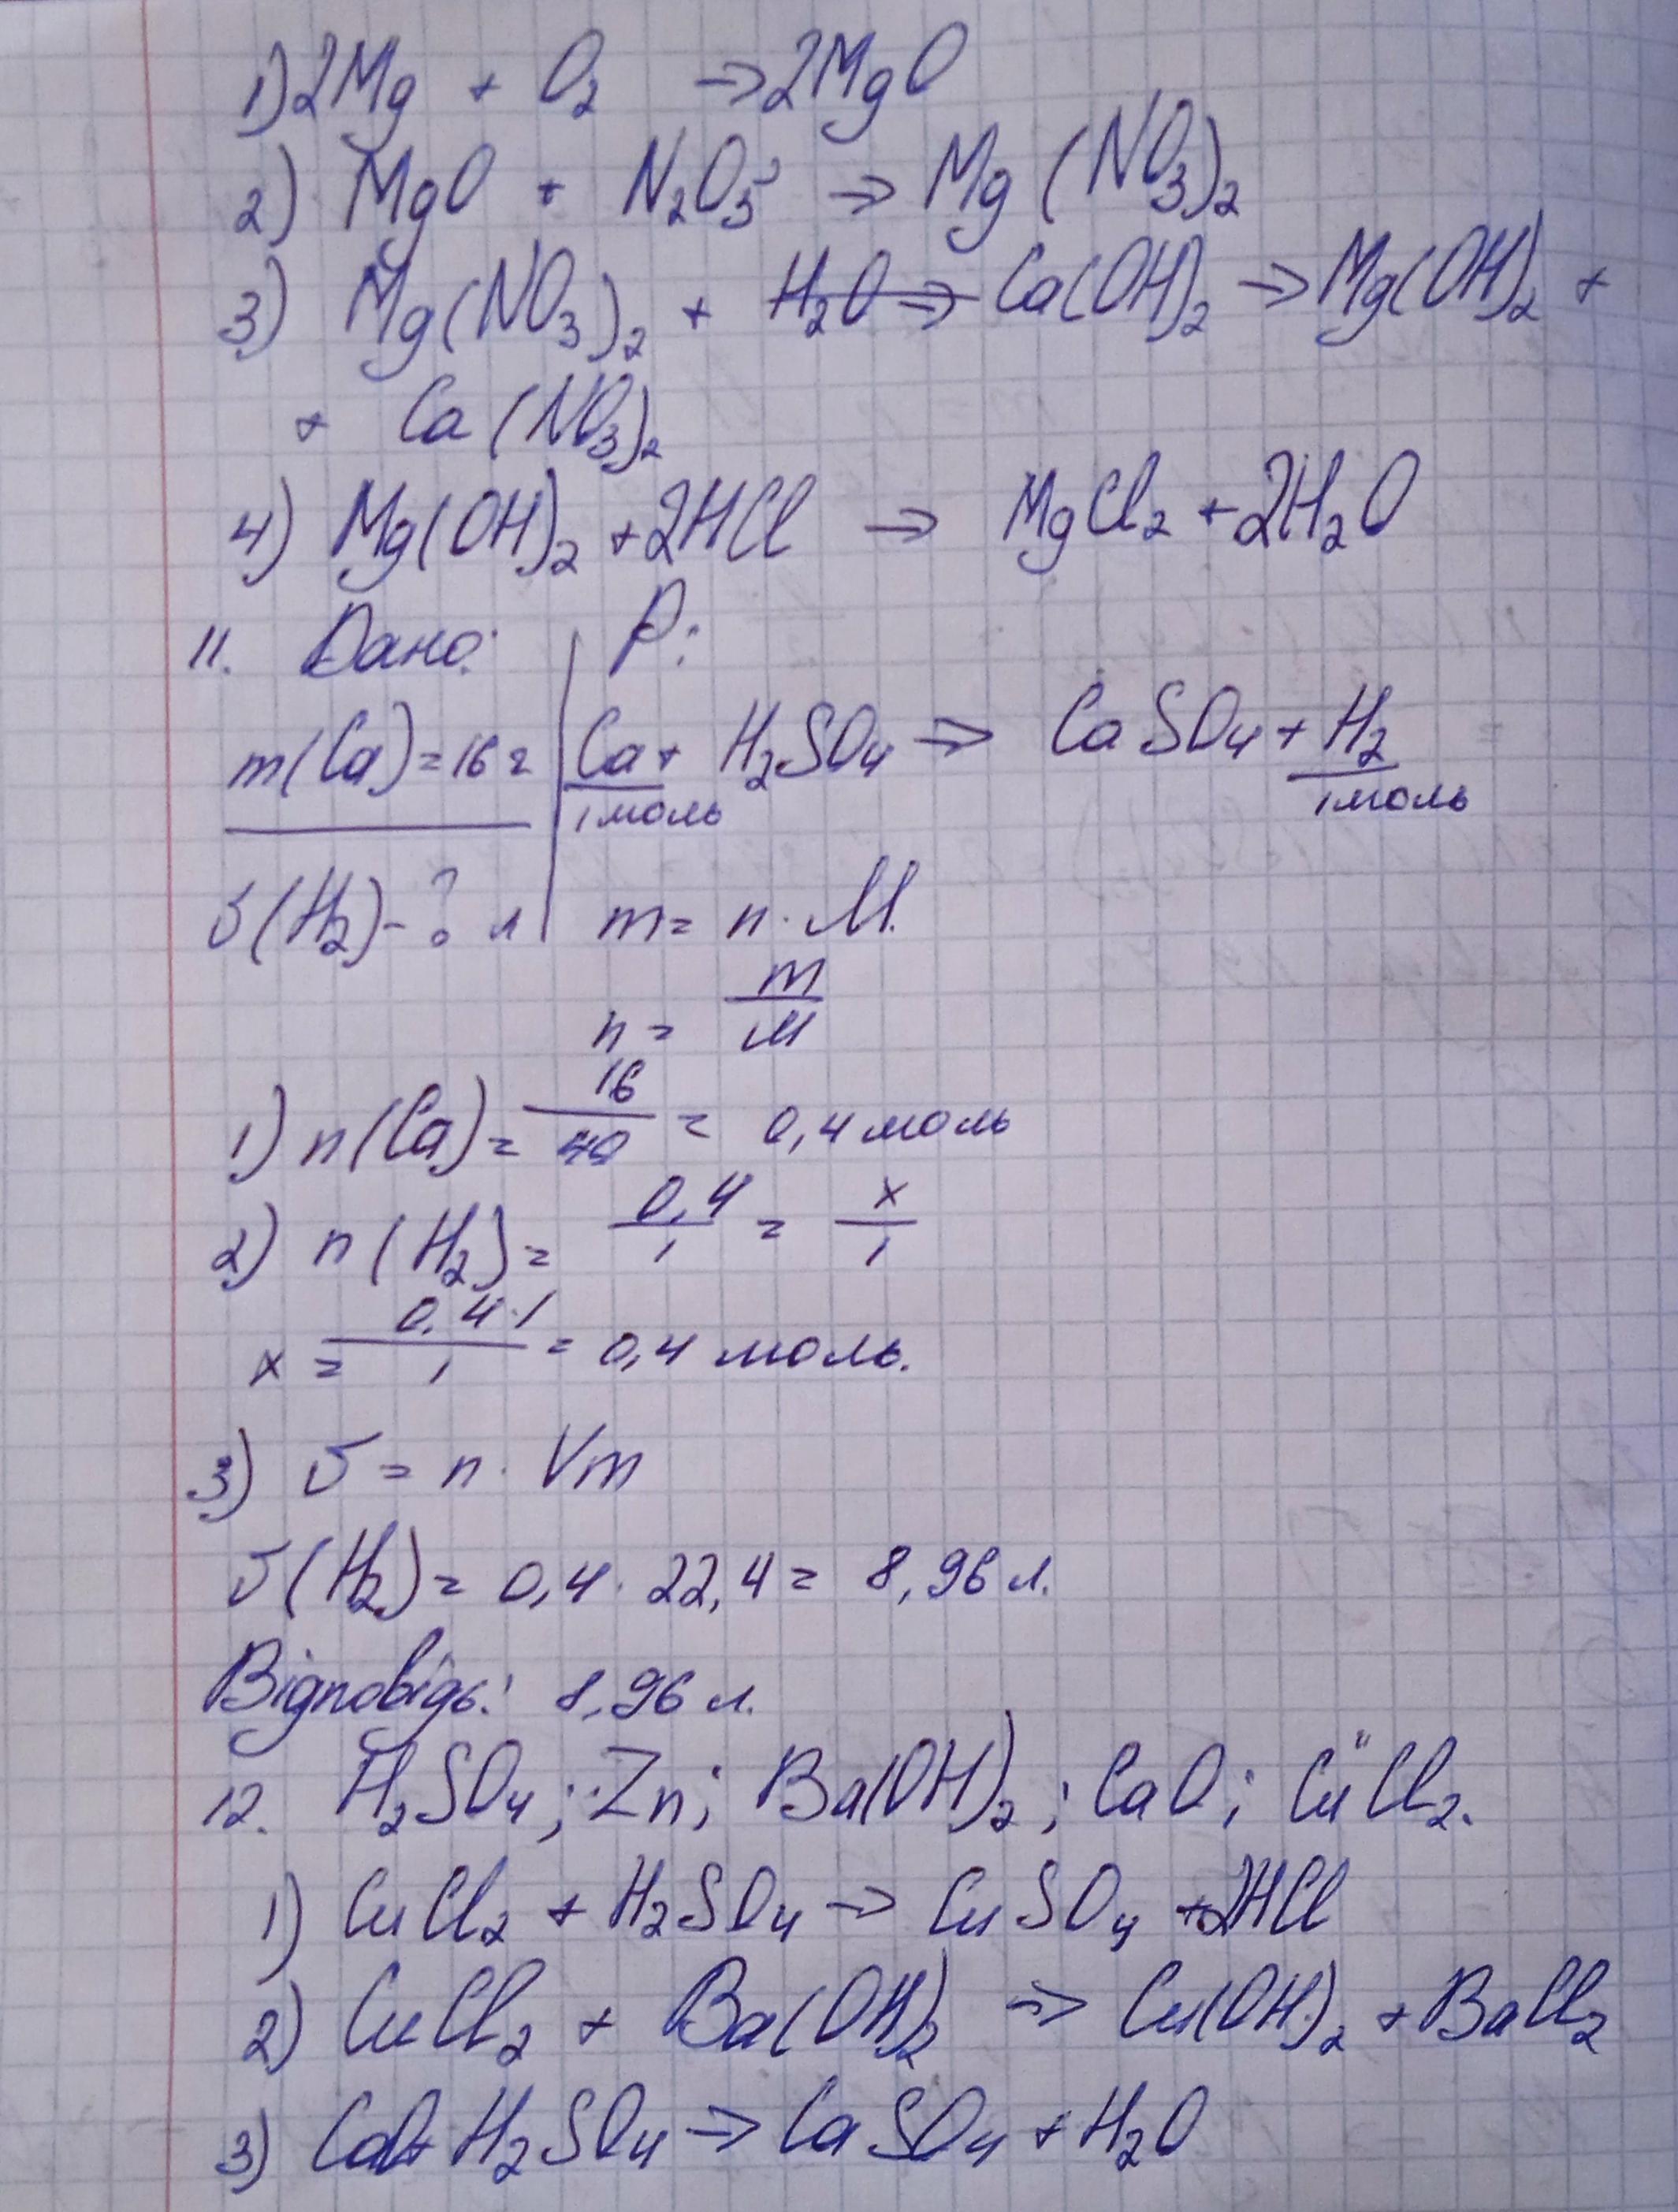 1) 2Mg + O₂ → 2MgO
2) MgO + N₂O₅ → Mg(NO₃)₂
3) Mg(NO₃)₂ + ~~H₂O →~~ Ca(OH)₂ → Mg(OH)₂ +
+ Ca(NO₃)₂
4) Mg(OH)₂ + 2HCl → MgCl₂ + 2H₂O
11. Дано: Р:
m(Ca) = 16 г Ca + H₂SO₄ → CaSO₄ + H₂
1 моль 1 моль
V(H₂) - ? л m = n · M.
n = m/M
1) n(Ca) = 16/40 = 0,4 моль
2) n(H₂) = 0,4/1 = x/1
x = 0,4·1/1 = 0,4 моль.
3) V = n · Vm
V(H₂) = 0,4 · 22,4 = 8,96 л.
Відповідь: 8,96 л.
12. H₂SO₄; Zn; Ba(OH)₂; CaO; CuᴵᴵCl₂.
1) CuCl₂ + H₂SO₄ → CuSO₄ + 2HCl
2) CuCl₂ + Ba(OH)₂ → Cu(OH)₂ + BaCl₂
3) CaO + H₂SO₄ → CaSO₄ + H₂O